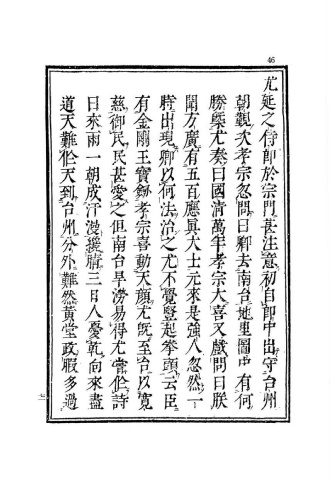 46
尤延之侍郎於宗門甚注意初自郎中出守台州
朝觀次孝宗忽問曰卿去南台地里圖中有何
勝槩尤奏曰國清萬年孝宗大喜又戲問曰朕
聞方廣有五百應眞大士元來是強人忽然一
時出現卿以何法治之尤不覺竪起拳頭云臣
有金剛王寶劒孝宗喜動天顔尤旣至台以寬
慈御民民甚愛之但南台旱澇易得尤嘗作詩
曰來雨一朝成汗漫援晴三日人憂乾向來盡
道天難作天到台州分外難然黃堂政暇多過